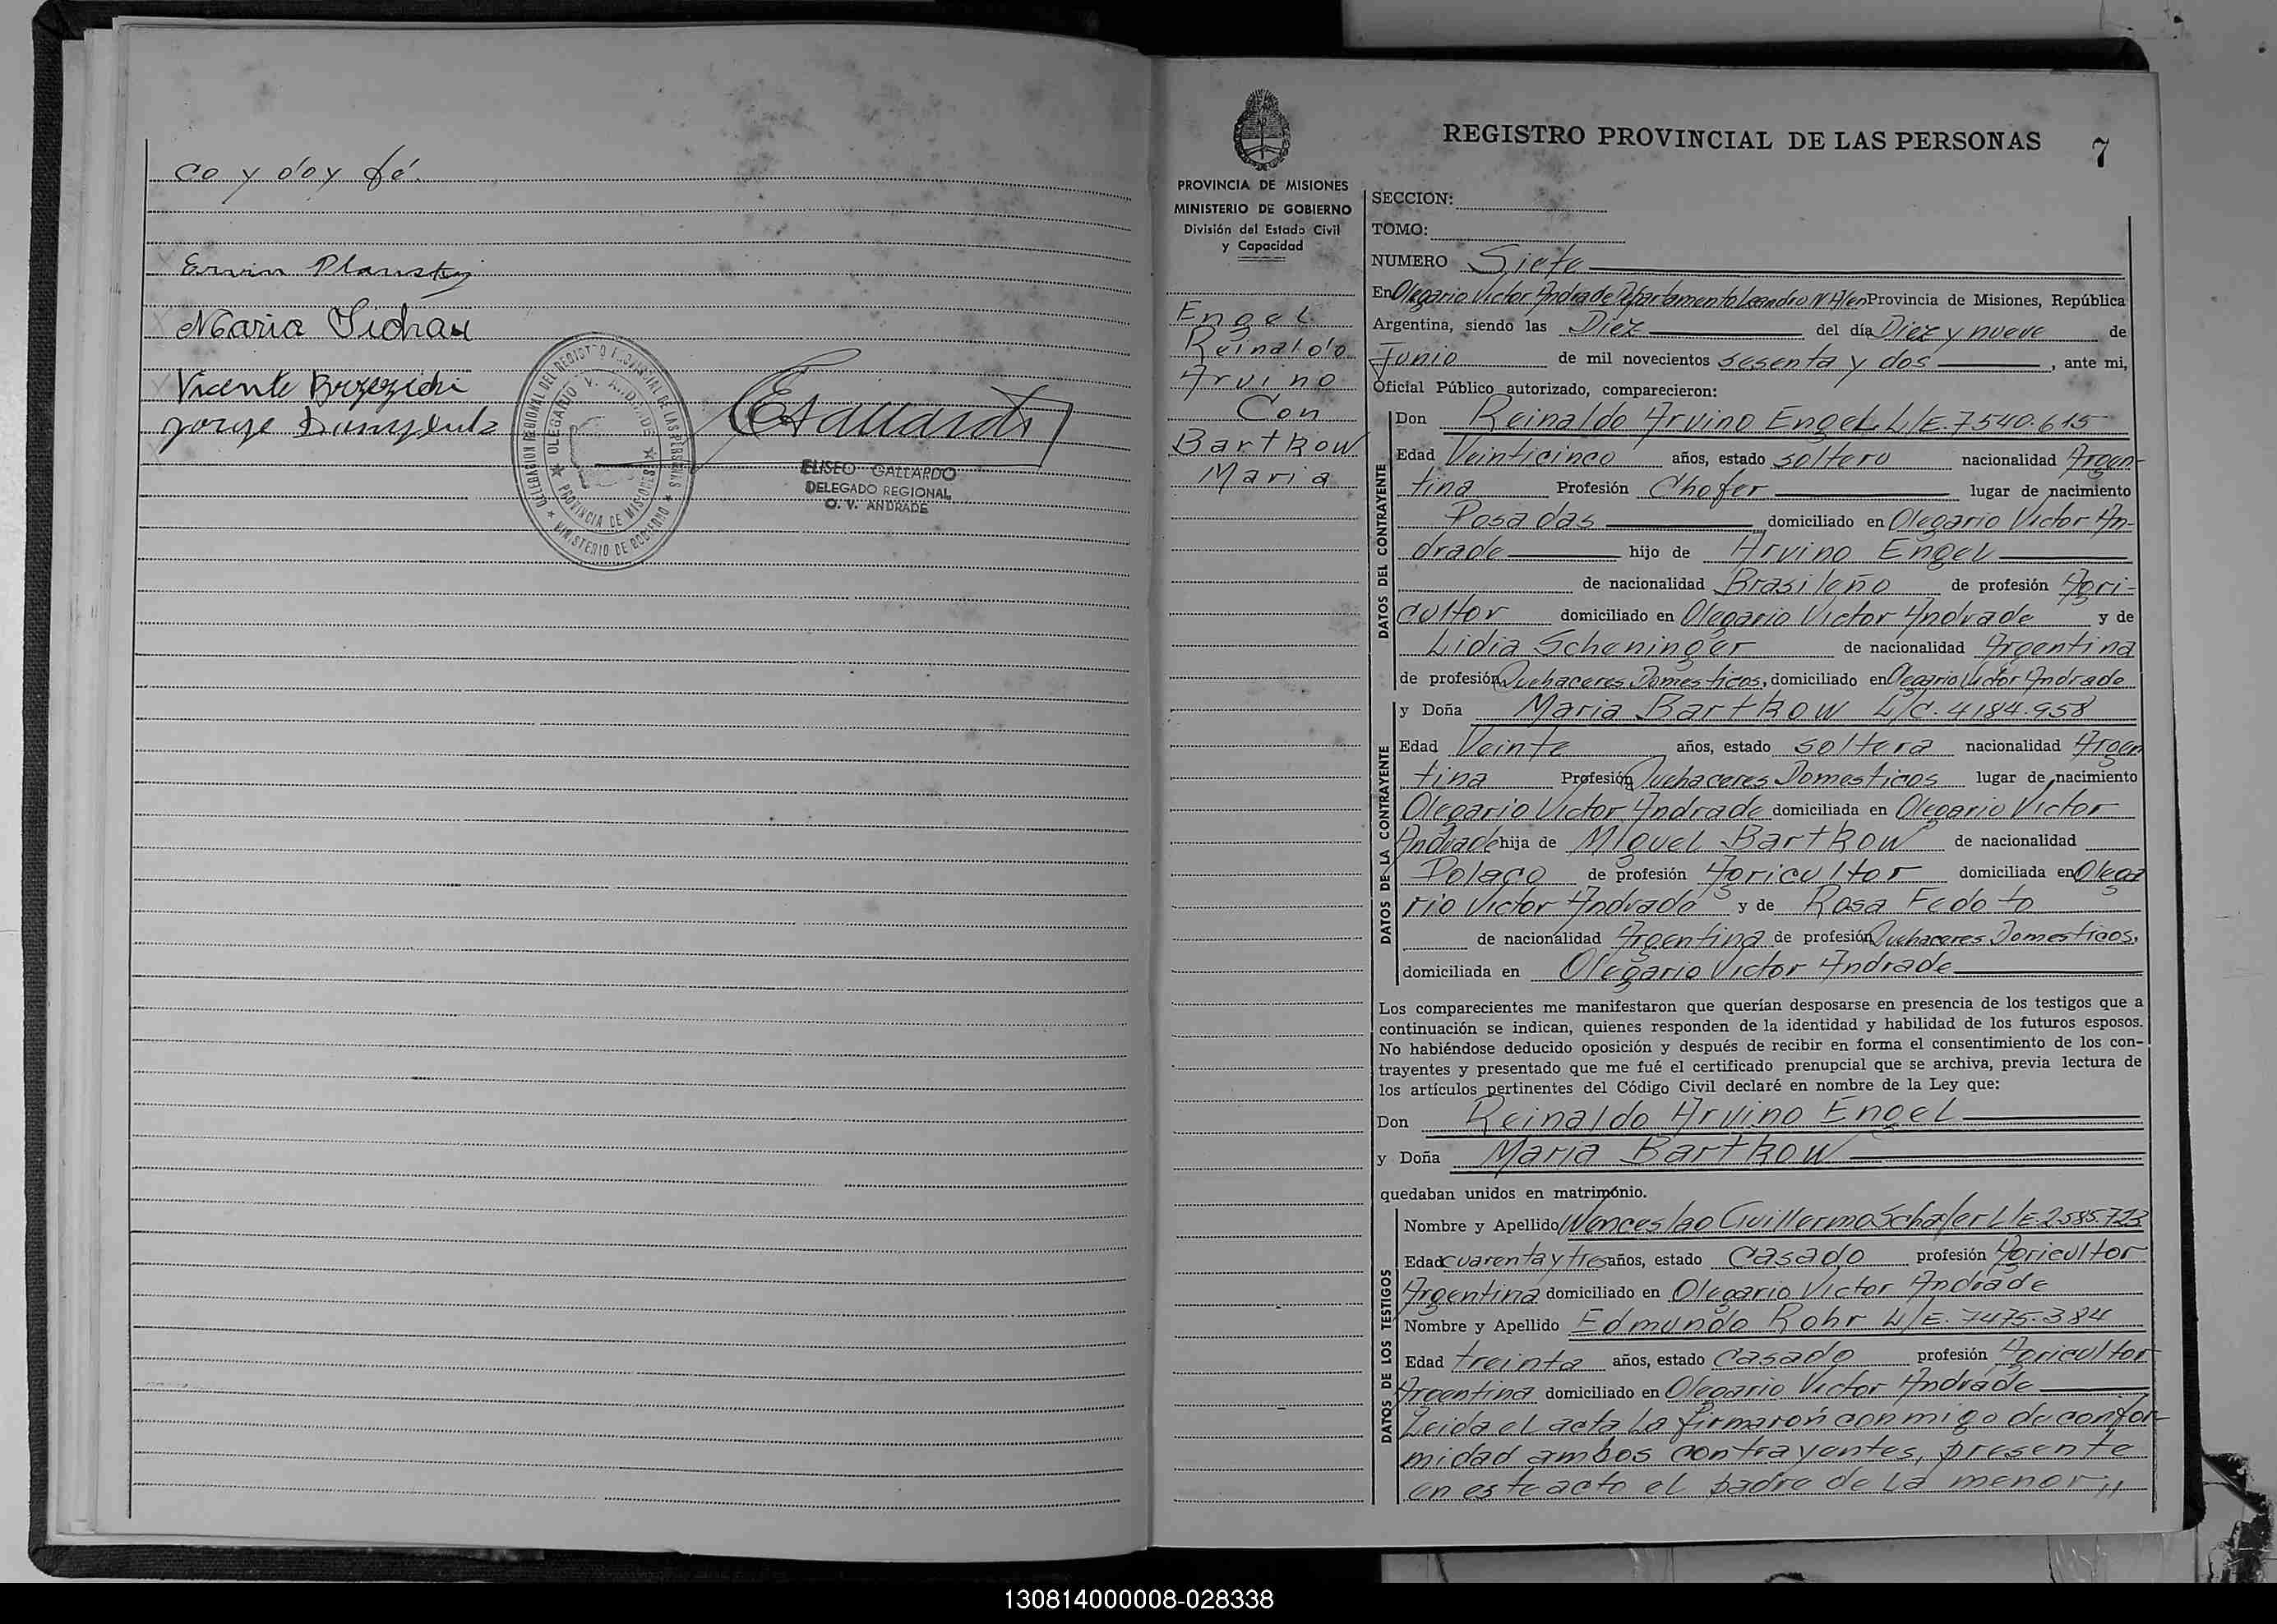 co y doy fé.
Erwin Plausky
Maria Sichau
Vicente Brzezicki
Jorge
DELEGACION REGIONAL DEL REGISTRO PROVINCIAL DE LAS PERSONAS
MINISTERIO DE GOBIERNO
OLEGARIO V. ANDRADE
PROVINCIA DE MISIONES
EGallardo
ELISEO GALLARDO
DELEGADO REGIONAL
O. V. ANDRADE
REGISTRO PROVINCIAL DE LAS PERSONAS 7
PROVINCIA DE MISIONES
MINISTERIO DE GOBIERNO
División del Estado Civil
y Capacidad
Engel
Reinaldo
Arvino
Con
Bartkow
Maria
SECCION:
TOMO:
NUMERO Siete
En Olegario Victor Andrade Departamento Leandro N. Alen Provincia de Misiones, República
Argentina, siendo las Diez del día Diez y nueve de
Junio de mil novecientos sesenta y dos, ante mi,
Oficial Público autorizado, comparecieron:
DATOS DEL CONTRAYENTE
Don Reinaldo Arvino Engel L/E. 7540.615
Edad Veinticinco años, estado soltero nacionalidad Argen-
tina Profesión Chofer lugar de nacimiento
Posadas domiciliado en Olegario Victor An-
drade hijo de Arvino Engel
de nacionalidad Brasileño de profesión Agri-
cultor domiciliado en Olegario Victor Andrade y de
Lidia Scheninger de nacionalidad Argentina
de profesión Quehaceres Domesticos, domiciliado en Olegario Victor Andrade
DATOS DE LA CONTRAYENTE
y Doña Maria Bartkow L/C. 4184.958
Edad Veinte años, estado soltera nacionalidad Argen
tina Profesión Quehaceres Domesticos lugar de nacimiento
Olegario Victor Andrade domiciliada en Olegario Victor
Andrade hija de Miguel Bartkow de nacionalidad
Polaco de profesión Agricultor domiciliada en Olega
rio Victor Andrade y de Rosa Fedoto
de nacionalidad Argentina de profesión Quehaceres Domesticos,
domiciliada en Olegario Victor Andrade
Los comparecientes me manifestaron que querían desposarse en presencia de los testigos que a
continuación se indican, quienes responden de la identidad y habilidad de los futuros esposos.
No habiéndose deducido oposición y después de recibir en forma el consentimiento de los con-
trayentes y presentado que me fué el certificado prenupcial que se archiva, previa lectura de
los artículos pertinentes del Código Civil declaré en nombre de la Ley que:
Don Reinaldo Arvino Engel
y Doña Maria Bartkow
quedaban unidos en matrimónio.
DATOS DE LOS TESTIGOS
Nombre y Apellido Wenceslao Guillermo Schafer L/E 2.585.723
Edad cuarenta y tres años, estado Casado profesión Agricultor
Argentina domiciliado en Olegario Victor Andrade
Nombre y Apellido Edmundo Rohr L/E. 7475.384
Edad treinta años, estado Casado profesión Agricultor
Argentina domiciliado en Olegario Victor Andrade
Leida el acta la firmarón conmigo de confor-
midad ambos contrayentes, presente
en este acto el padre de la menor,,
130814000008-028338